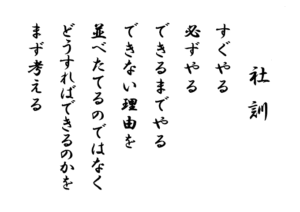 社訓
すぐやる
必ずやる
できるまでやる
できない理由を
並べたてるのではなく
どうすればできるのかを
まず考える